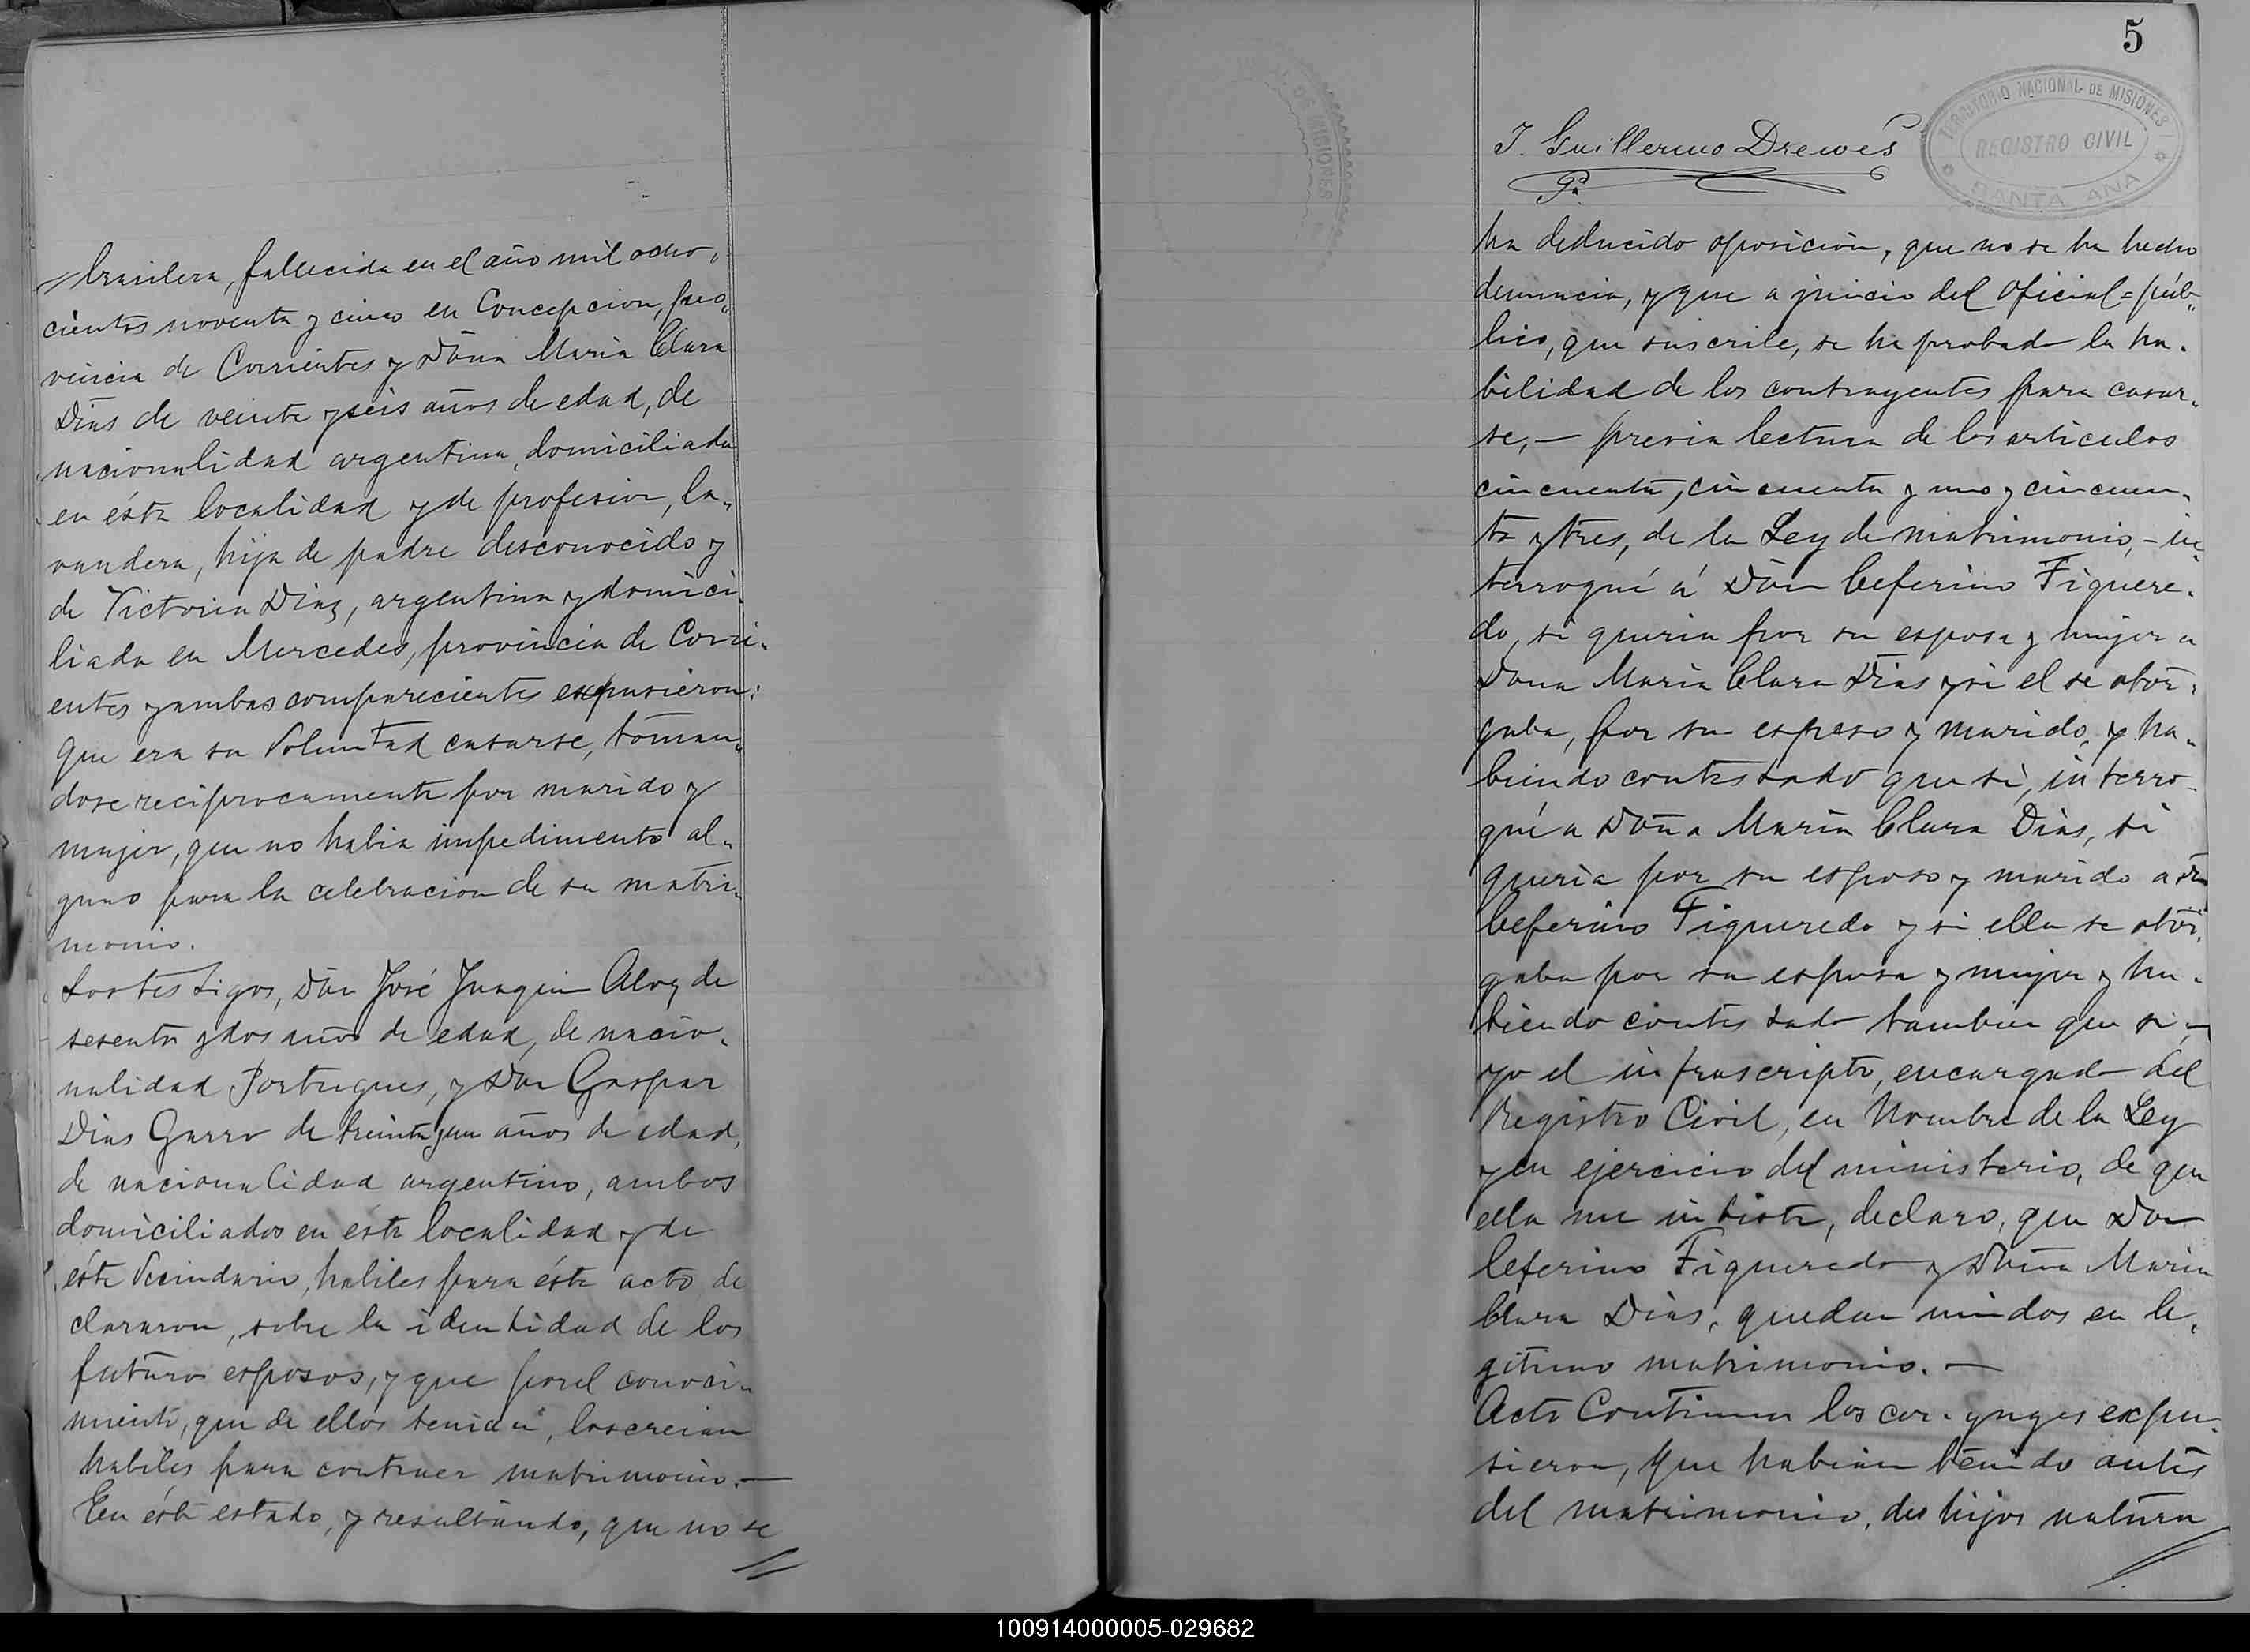 brasilera, fallecida en el año mil ocho„
cientos noventa y cinco en Concepcion, pro„
vincia de Corrientes y Doña Maria Clara
Dias de veinte y seis años de edad, de
nacionalidad argentina, domiciliada
en ésta localidad y de profesion, la„
vandera, hija de padre desconocido y
de Victoria Diaz, argentina y domici
liada en Mercedes, provincia de Corri„
entes y ambas comparecientes expusieron:
que era su Voluntad casarse, toman„
dose reciprocamente por marido y
mujer, que no habia impedimento al„
guno para la celebracion de su matri„
monio.
Los testigos, Don José Juaquin Aloy de
sesenta y dos años de edad, de nacio„
nalidad Portugues, y Don Gaspar
Dias Garro de treinta y un años de edad,
de nacionalidad argentino, ambos
domiciliados en ésta localidad y de
éste Vecindario, habiles para éste acto de
clararon, sobre la identidad de los
futuros esposos, y que por el conoci„
miento, que de ellos tenian, los creian
habiles para contraer matrimonio.—
En éste estado, y resultando, que no se
5
TERRITORIO NACIONAL DE MISIONES
REGISTRO CIVIL
SANTA ANA
J. Guillermo Drewes
ha deducido oposición, que no se ha hecho
denuncia, y que a juicio del Oficial=púb„
lico, que suscribe, se ha probado la ha„
bilidad de los contrayentes para casar„
se,— previa lectura de los articulos
cincuenta, cincuenta y uno y cincuen„
ta y tres, de la Ley de matrimonio,- in
terrogué á Don Ceferino Figuere„
do, si queria por su esposa y mujer a
Doña Maria Clara Dias y si el se otor„
gaba, por su esposo y marido, y ha„
biendo contestado que sì, interro„
gué a Doña Maria Clara Dias, si
queria por su esposo y marido a Dn
Ceferino Figueredo y si ella se otor„
gaba por su esposa y mujer y ha„
biendo contestado tambien que si,—
yo el infrascripto, encargado del
Registro Civil, en Nombre de la Ley
y en ejercicio del ministerio, de que
ella me inbiste, declaro, que Don
Ceferino Figueredo y Doña Maria
Clara Dias, quedan unidos en le„
gitimo matrimonio.—
Acto Continuo los conyuges expu„
sieron, que habian tenido antes
del matrimonio, dos hijos natura
100914000005-029682